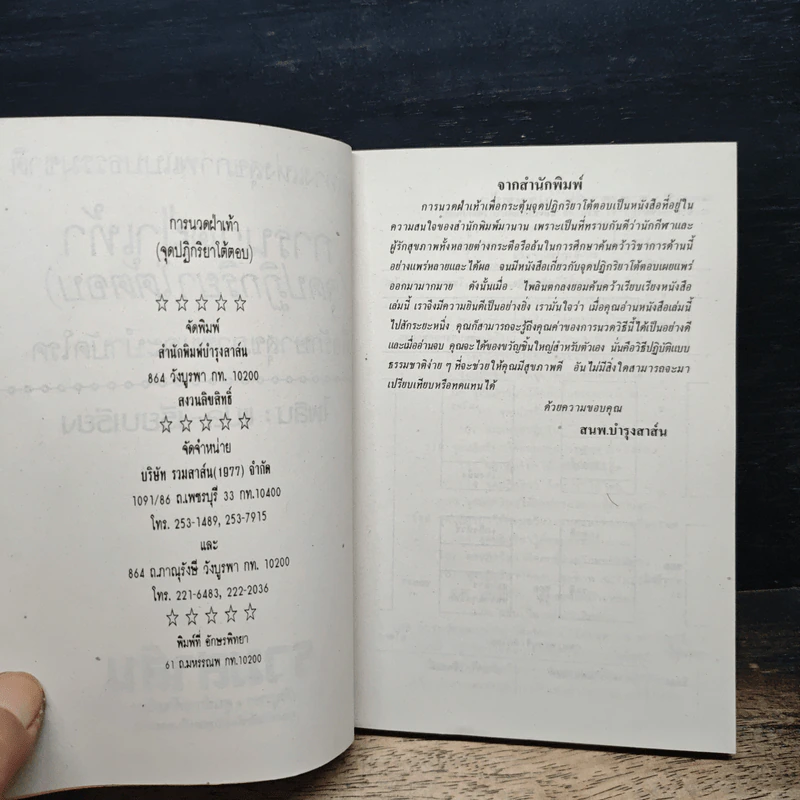 การนวดฝ่าเท้า
(จุดปฏิกริยาโต้ตอบ)
จัดพิมพ์
สำนักพิมพ์บำรุงสาส์น
864 วังบูรพา กท. 10200
สงวนลิขสิทธิ์
จัดจำหน่าย
บริษัท รวมสาส์น(1977) จำกัด
1091/86 ถ.เพชรบุรี 33 กท.10400
โทร. 253-1489, 253-7915
และ
864 ถ.ภาณุรังษี วังบูรพา กท. 10200
โทร. 221-6483, 222-2036
พิมพ์ที่ อักษรพิทยา
61 ถ.มหรรณพ กท.10200
จากสำนักพิมพ์
การนวดฝ่าเท้าเพื่อกระตุ้นจุดปฏิกริยาโต้ตอบเป็นหนังสือที่อยู่ใน
ความสนใจของสำนักพิมพ์มานาน เพราะเป็นที่ทราบกันดีว่านักกีฬาและ
ผู้รักสุขภาพทั้งหลายต่างกระตือรือล้นในการศึกษาค้นคว้าวิชาการด้านนี้
อย่างแพร่หลายและได้ผล จนมีหนังสือเกี่ยวกับจุดปฏิกริยาโต้ตอบเผยแพร่
ออกมามากมาย ดังนั้นเมื่อ ไพลินตกลงยอมค้นคว้าเรียบเรียงหนังสือ
เล่มนี้ เราจึงมีความยินดีเป็นอย่างยิ่ง เรามั่นใจว่า เมื่อคุณอ่านหนังสือเล่มนี้
ไปสักระยะหนึ่ง คุณก็สามารถจะรู้ถึงคุณค่าของการนวดวิธีนี้ได้เป็นอย่างดี
และเมื่ออ่านจบ คุณจะได้ของขวัญชิ้นใหญ่สำหรับตัวเอง นั่นคือวิธีปฏิบัติแบบ
ธรรมชาติง่าย ๆ ที่จะช่วยให้คุณมีสุขภาพดี อันไม่มีสิ่งใดสามารถจะมา
เปรียบเทียบหรือทดแทนได้
ด้วยความขอบคุณ
สนพ.บำรุงสาส์น